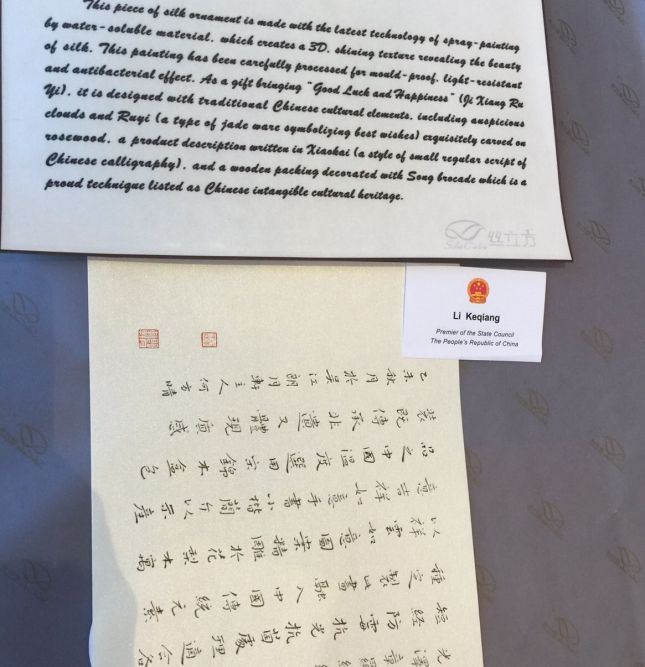 This piece of silk ornament is made with the latest technology of spray-painting
by water-soluble material, which creates a 3D, shining texture revealing the beauty
of silk. This painting has been carefully processed for mould-proof, light-resistant
and antibacterial effect. As a gift bringing "Good Luck and Happiness" (Ji Xiang Ru
Yi), it is designed with traditional Chinese cultural elements, including auspicious
clouds and Ruyi (a type of jade ware symbolizing best wishes) exquisitely carved on
rosewood, a product description written in Xiaokai (a style of small regular script of
Chinese calligraphy), and a wooden packing decorated with Song brocade which is a
proud technique listed as Chinese intangible cultural heritage.
Li Keqiang
Premier of the State Council
The People's Republic of China
防霉抗光抗菌處理適合各
種定製此書融入中國傳統元素
以祥雲如意圖案精雕於花梨木寓
意吉祥如意手書小楷簡介以示產
品之中國溫度選用宋錦木盒包
裝既傳承非遺又體現質感
乙未秋月於吴江朗月軒主人何方晴